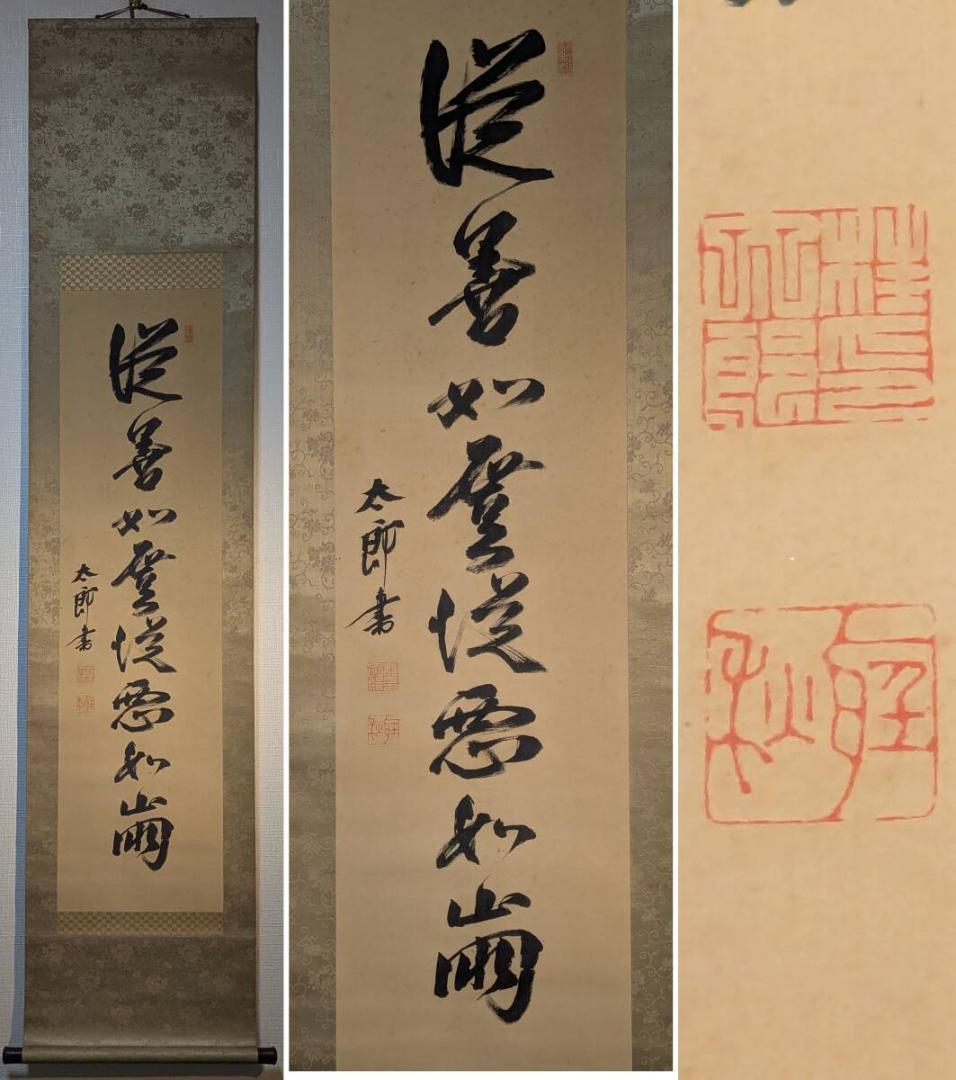 從善如登從惡如崩
太郎書
從善如登從惡如崩
太郎書
桂印太郎